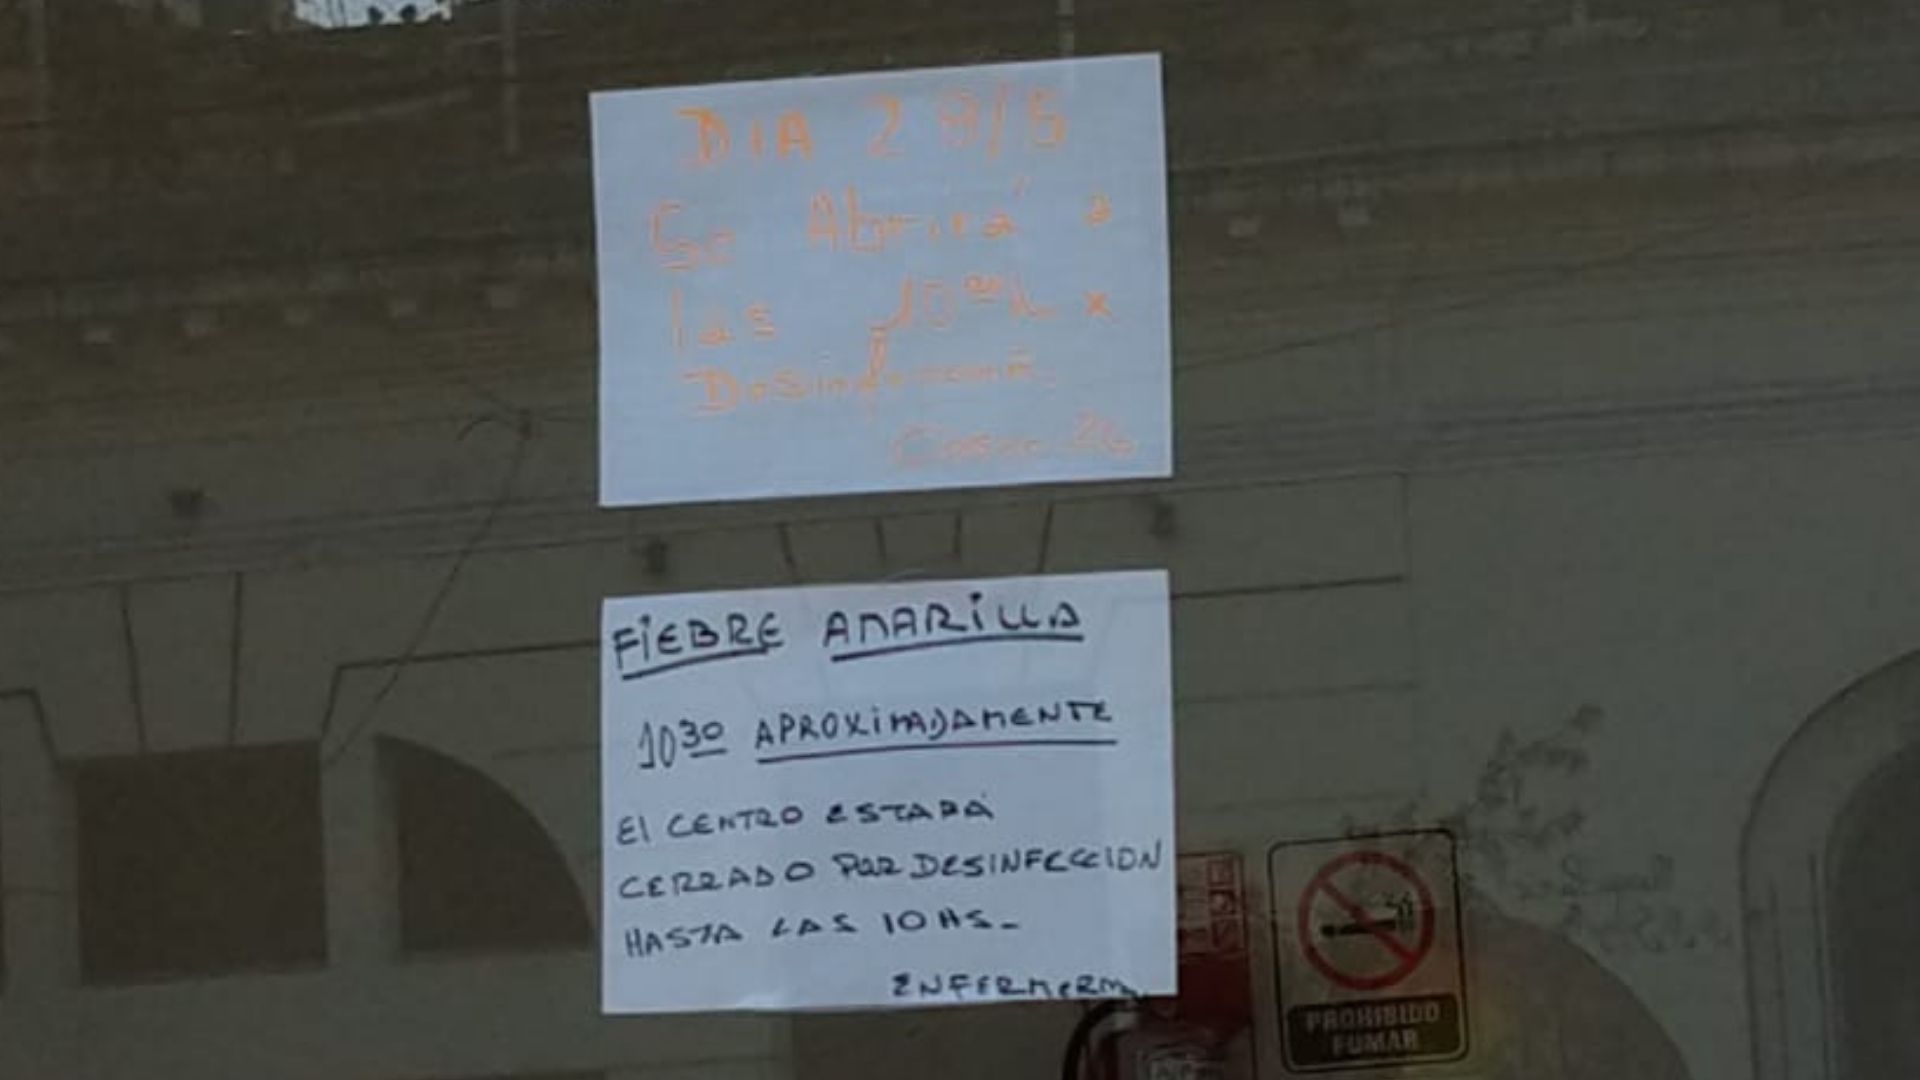 DIA 29/5
Se Abrirá a
las 10⁰⁰h x
Desinfección
FiEBRE AMARiLLA
10³⁰ APROXiMADAMENTE
El CENTRO ESTARÁ
CERRADO POR DESINFECCION
HASTA LAS 10 HS.-
ENFERMERIA
PROHIBIDO
FUMAR